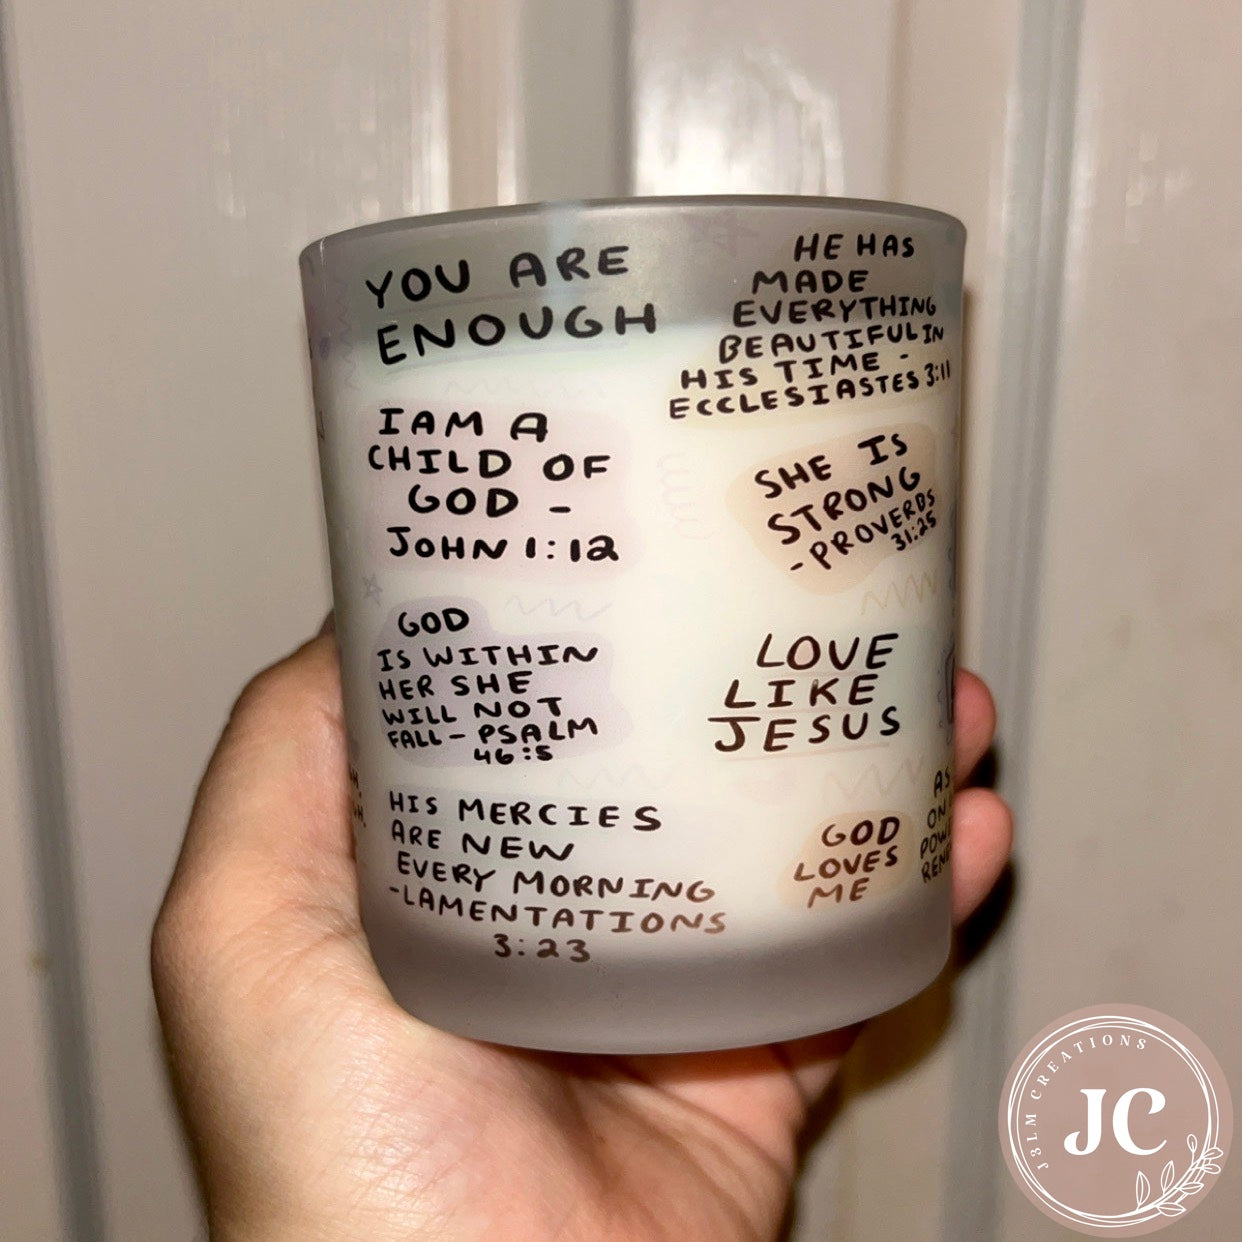 YOU ARE
ENOUGH
I AM A
CHILD OF
GOD -
JOHN 1:12
GOD
IS WITHIN
HER SHE
WILL NOT
FALL - PSALM
46:5
HIS MERCIES
ARE NEW
EVERY MORNING
-LAMENTATIONS
3:23
HE HAS
MADE
EVERYTHING
BEAUTIFUL IN
HIS TIME -
ECCLESIASTES 3:11
SHE IS
STRONG
-PROVERBS
31:25
LOVE
LIKE
JESUS
GOD
LOVES
ME
AS
ON
J3LM CREATIONS
JC